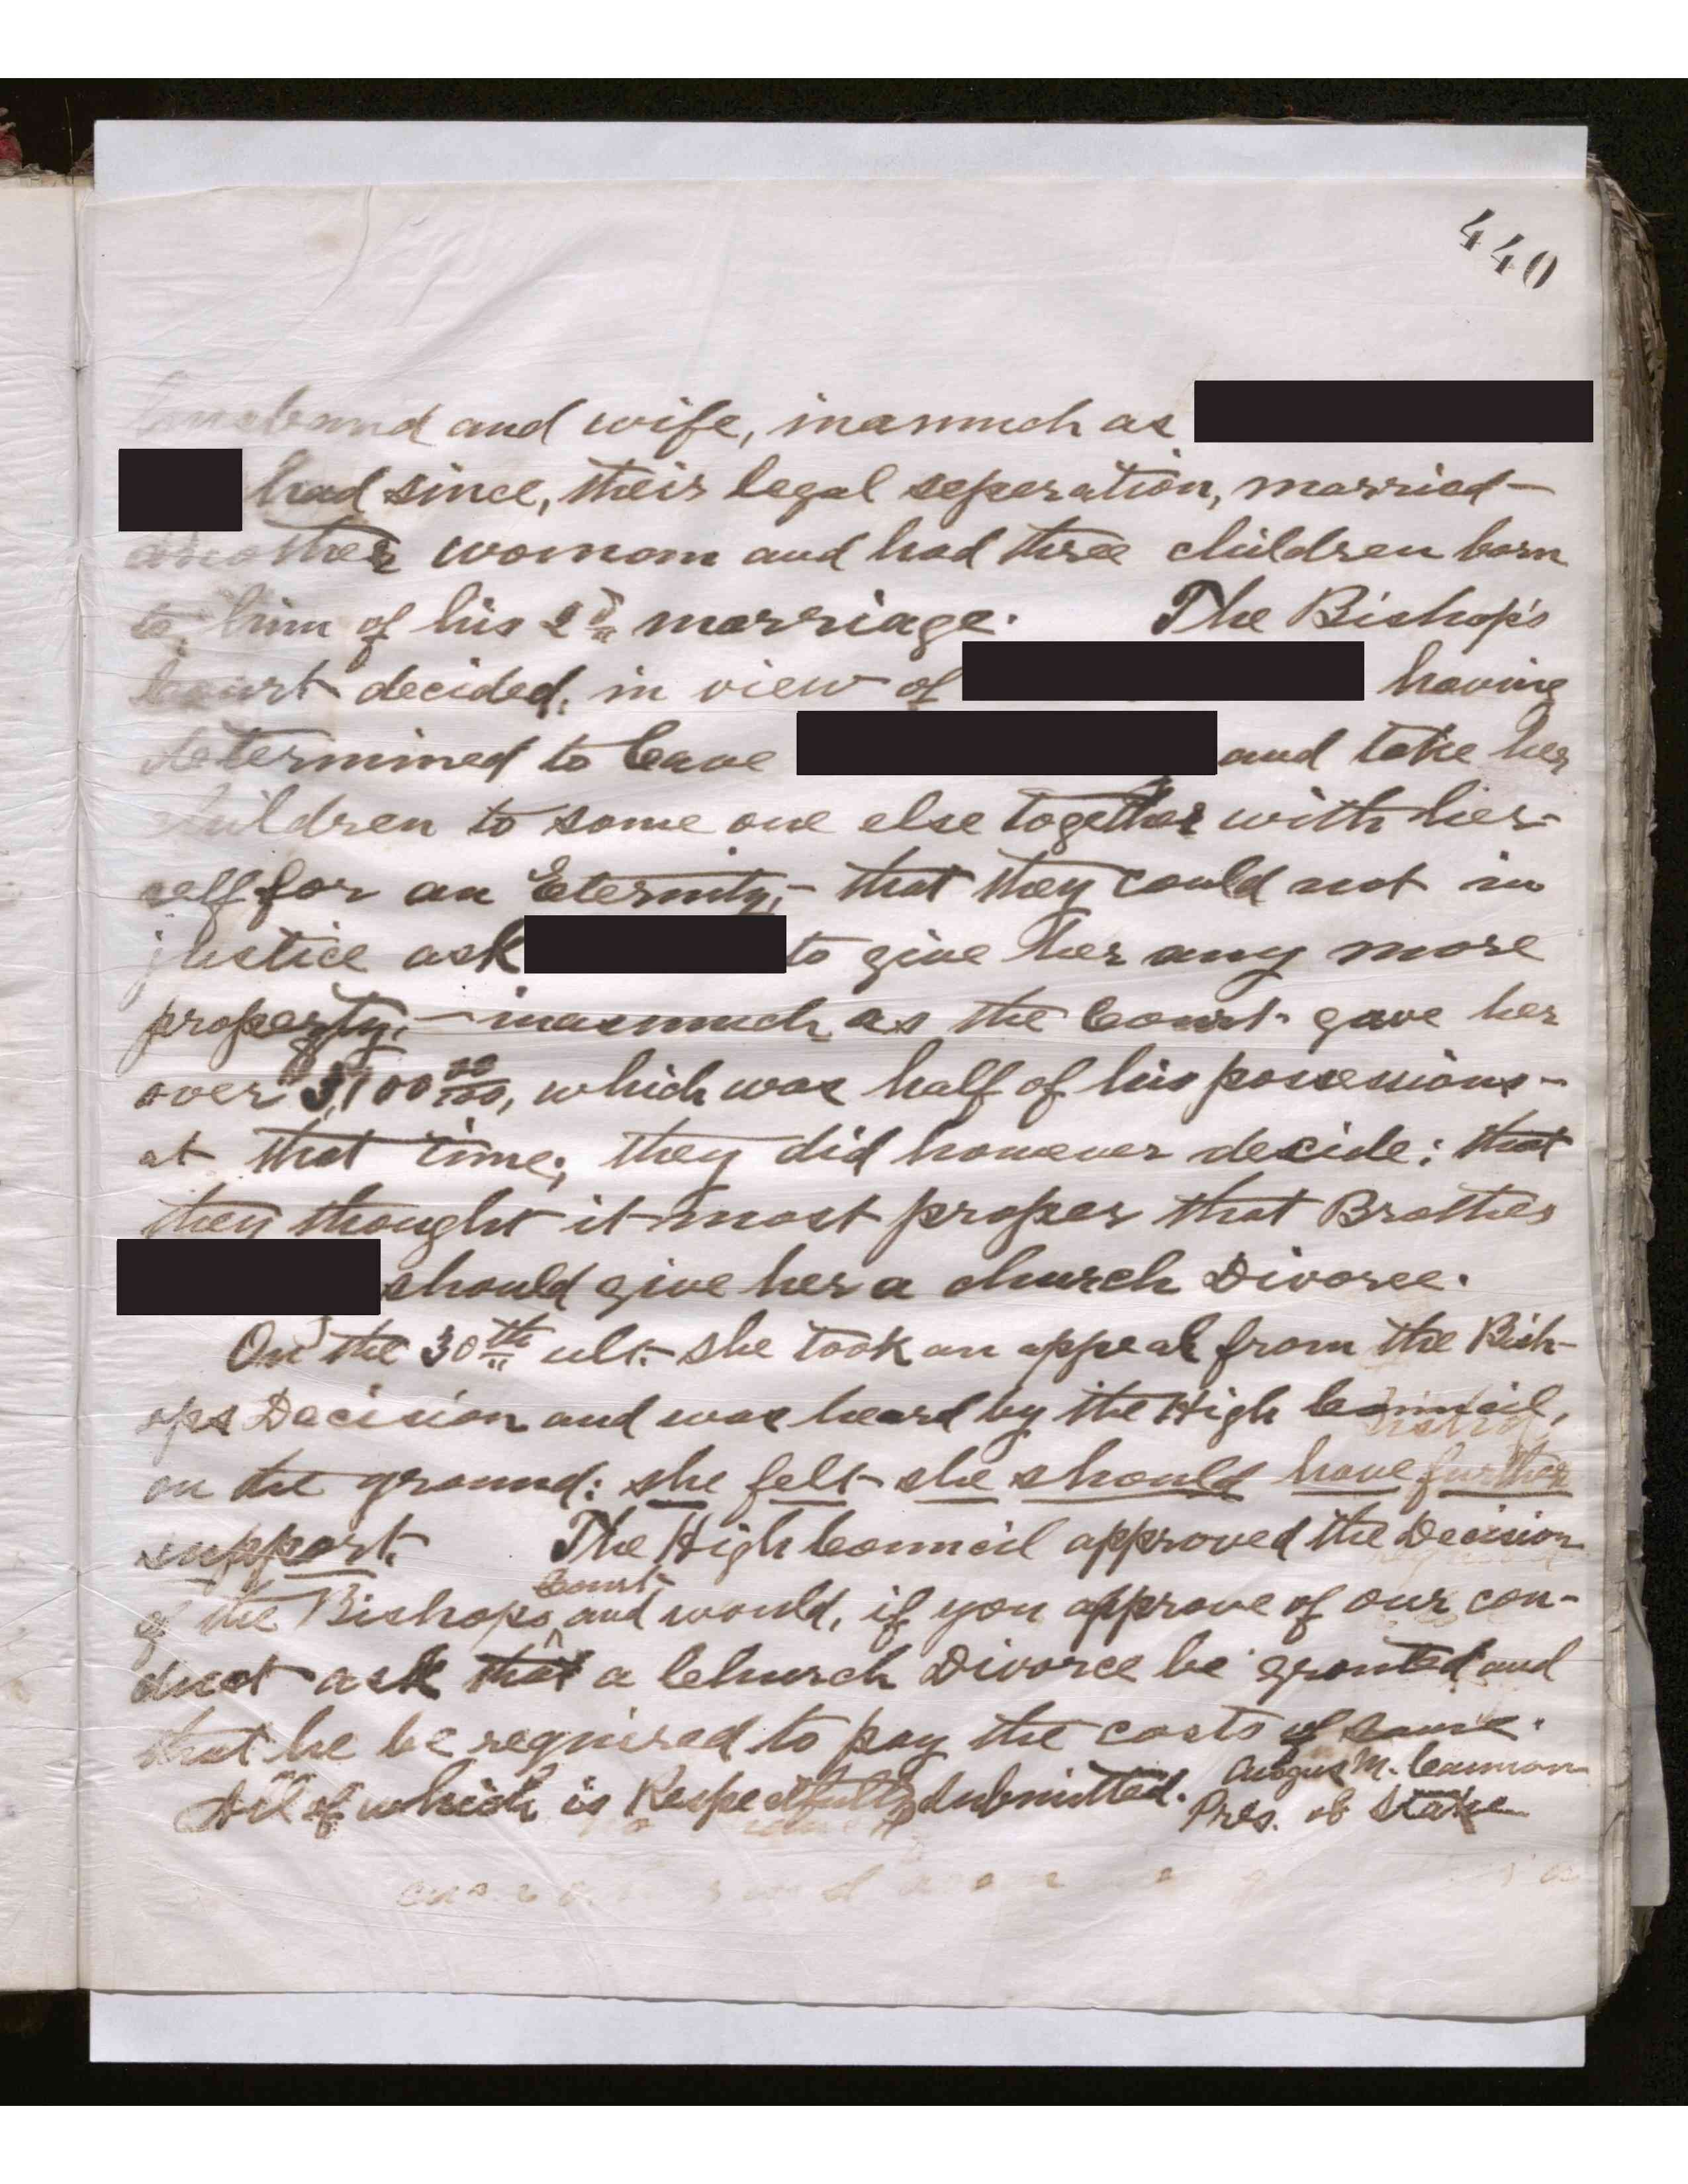 440
husband and wife, inasmuch as
had since, their legal seperation, married-
another woman and had three children born
to him of his 2d marriage. The Bishop's
Court decided, in view of having
determined to leave and take her
children to some one else together with her-
self for an Eternity,- that they could not in
justice ask to give her any more
property,- inasmuch as the Court gave her
over $3,100 00/100, which was half of his possessions-
at that time; they did however decide: that
they thought it most proper that Brother
should give her a church Divorce.
On the 30th ult. she took an appeal from the Bish-
ops Decision and was heard by the High Council,
on the ground: she felt she should have further
support. The High Council approved the Decision
Court,
of the Bishops and would, if you approve of our con-
duct ask that a Church Divorce be granted and
that he be required to pay the costs of same.
All of which is Respectfully submitted. Angus M. Cannon
Pres. of Stake